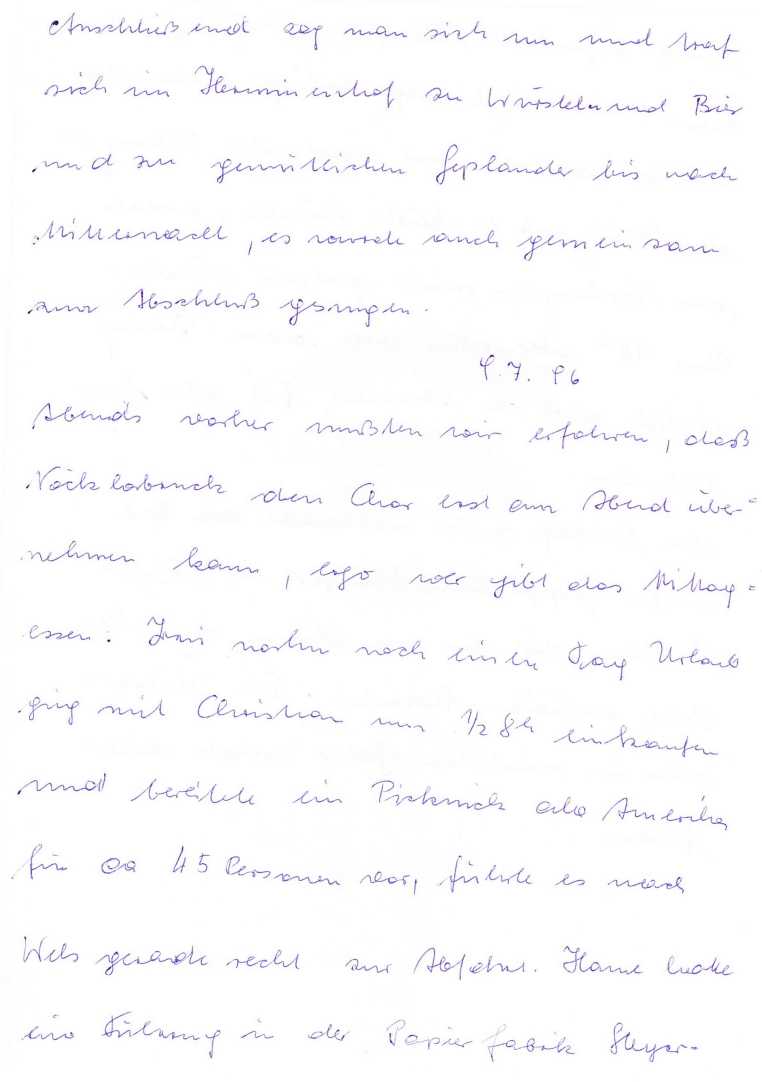 Anschließend zog man sich um und traf
sich im Herminenhof zu Würsteln und Bier
und zu gemütlichen Geplauder bis nach
Mitternacht, es wurde auch gemeinsam
zum Abschluß gesungen.
9.7.96
Abends vorher mußten wir erfahren, daß
Vöcklabruck den Chor erst am Abend über=
nehmen kann, wer gibt das Mittag=
essen. nahm noch einen Tag Urlaub
ging mit Christian um 1/2 8h einkaufen
und bereitete ein Picknick ala Amerika
für ca 45 Personen vor, führte es nach
Wels gerade recht zur Abfahrt. Hanne hatte
eine Führung in der Papierfabrik Steyer-